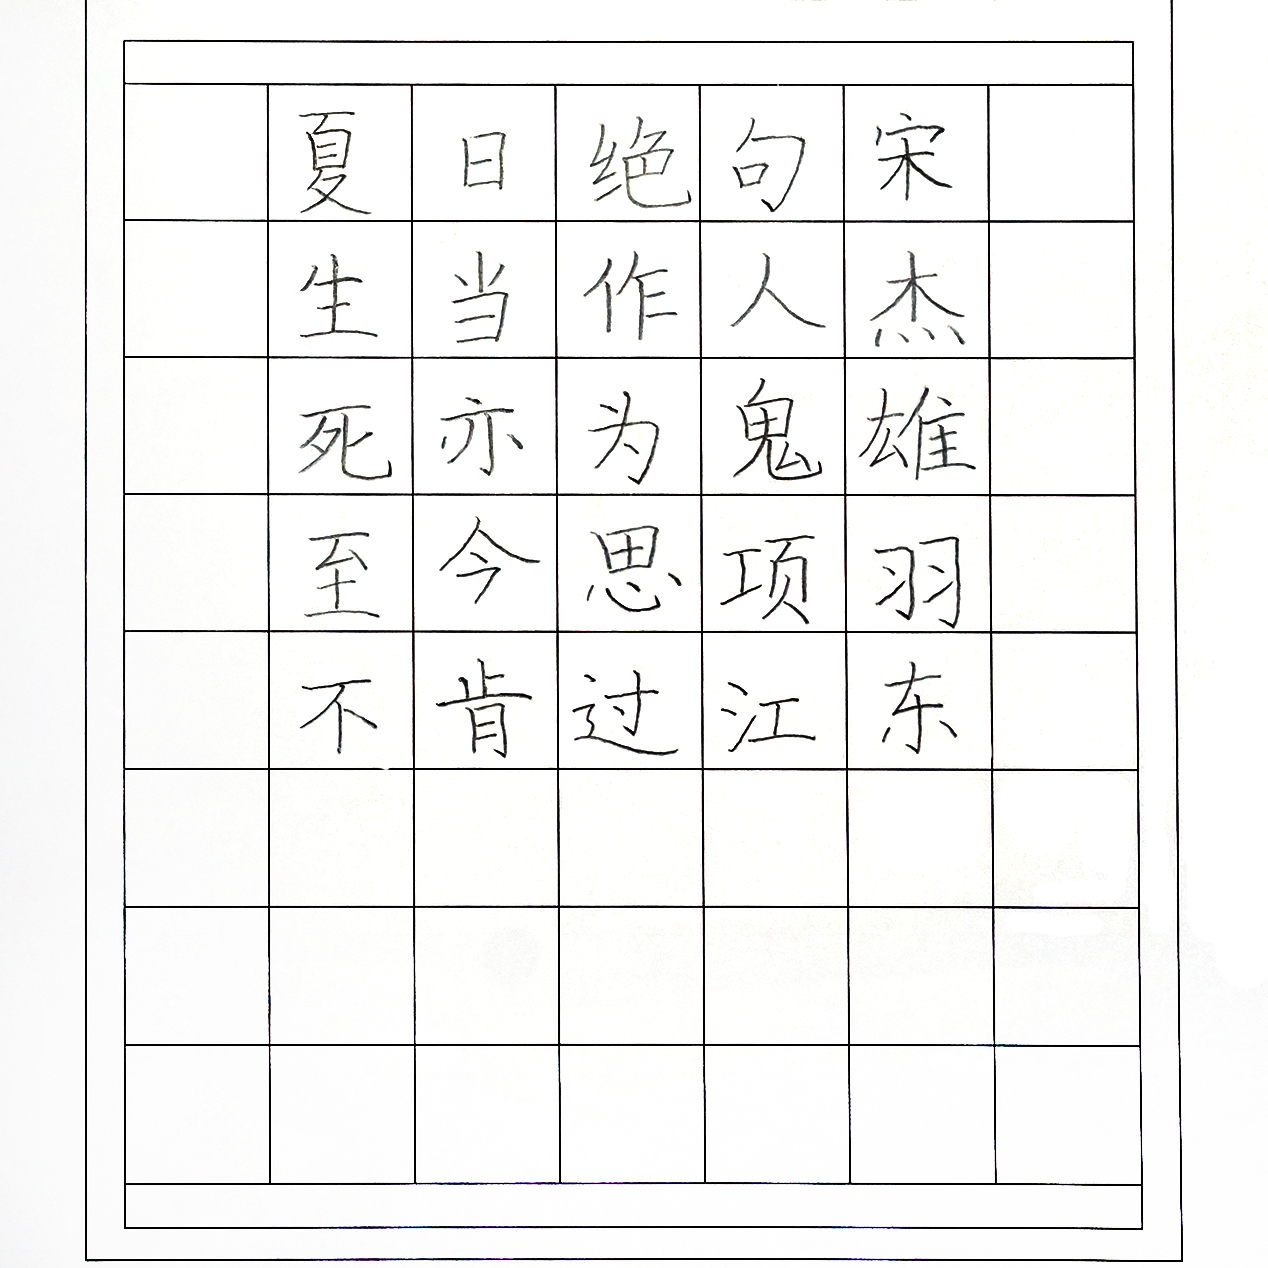 夏日绝句宋
生当作人杰
死亦为鬼雄
至今思项羽
不肯过江东